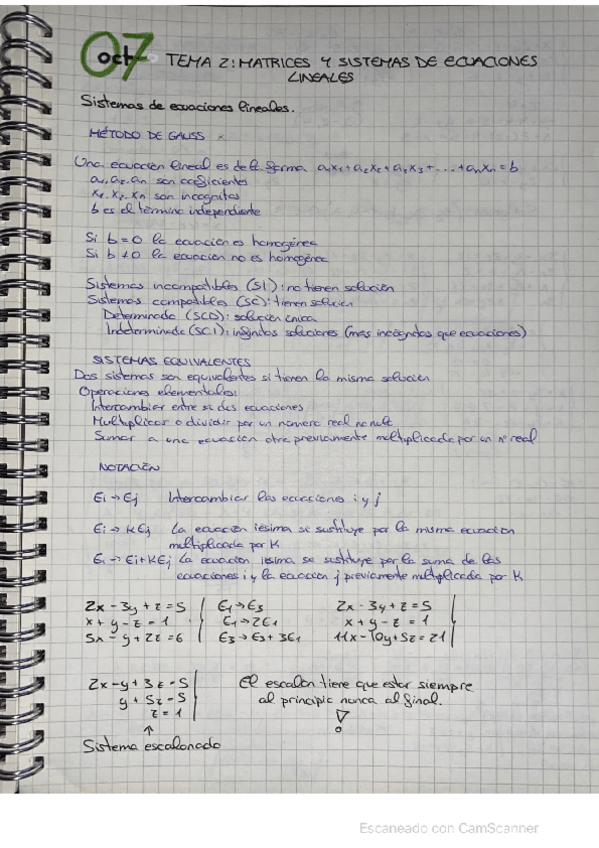 07
oct
TEMA 2: MATRICES Y SISTEMAS DE ECUACIONES
LINEALES
Sistemas de ecuaciones lineales.
MÉTODO DE GAUSS
Una ecuación lineal es de la forma a₁x₁+a₂x₂+a₃x₃+...+aₙxₙ=b
a₁, a₂, aₙ son coeficientes
x₁, x₂, xₙ son incognitas
b es el término independiente
Si b=0 la ecuación es homogénea
Si b≠0 la ecuación no es homogénea
Sistemas incompatibles (SI): no tienen solución
Sistemas compatibles (SC): tienen solución
Determinado (SCD): solución única
Indeterminado (SCI): infinitas soluciones (mas incógnitas que ecuaciones)
SISTEMAS EQUIVALENTES
Dos sistemas son equivalentes si tienen la misma solución
Operaciones elementales:
Intercambiar entre si dos ecuaciones
Multiplicar o dividir por un número real no nulo
Sumar a una ecuación otra previamente multiplicada por un nº real
NOTACIÓN
Ei → Ej Intercambiar las ecuaciones i y j
Ei → KEj La ecuación iesima se sustituye por la misma ecuación
multiplicada por K
Ei → Ei+KEj La ecuación iesima se sustituye por la suma de las
ecuaciones i y la ecuación j previamente multiplicada por K
2x - 3y + z = 5 | E₁ → E₃ 2x - 3y + z = 5 |
x + y - z = 1 | E₁ → 2E₁ x + y - z = 1 |
5x - y + 2z = 6 | E₃ → E₃ + 3E₁ 11x - 10y + 5z = 21 |
2x - y + 3z = 5 | El escalon tiene que estar siempre
y + 5z = 5 | al principio nunca al final.
z = 1 |
Sistema escalonado
Escaneado con CamScanner